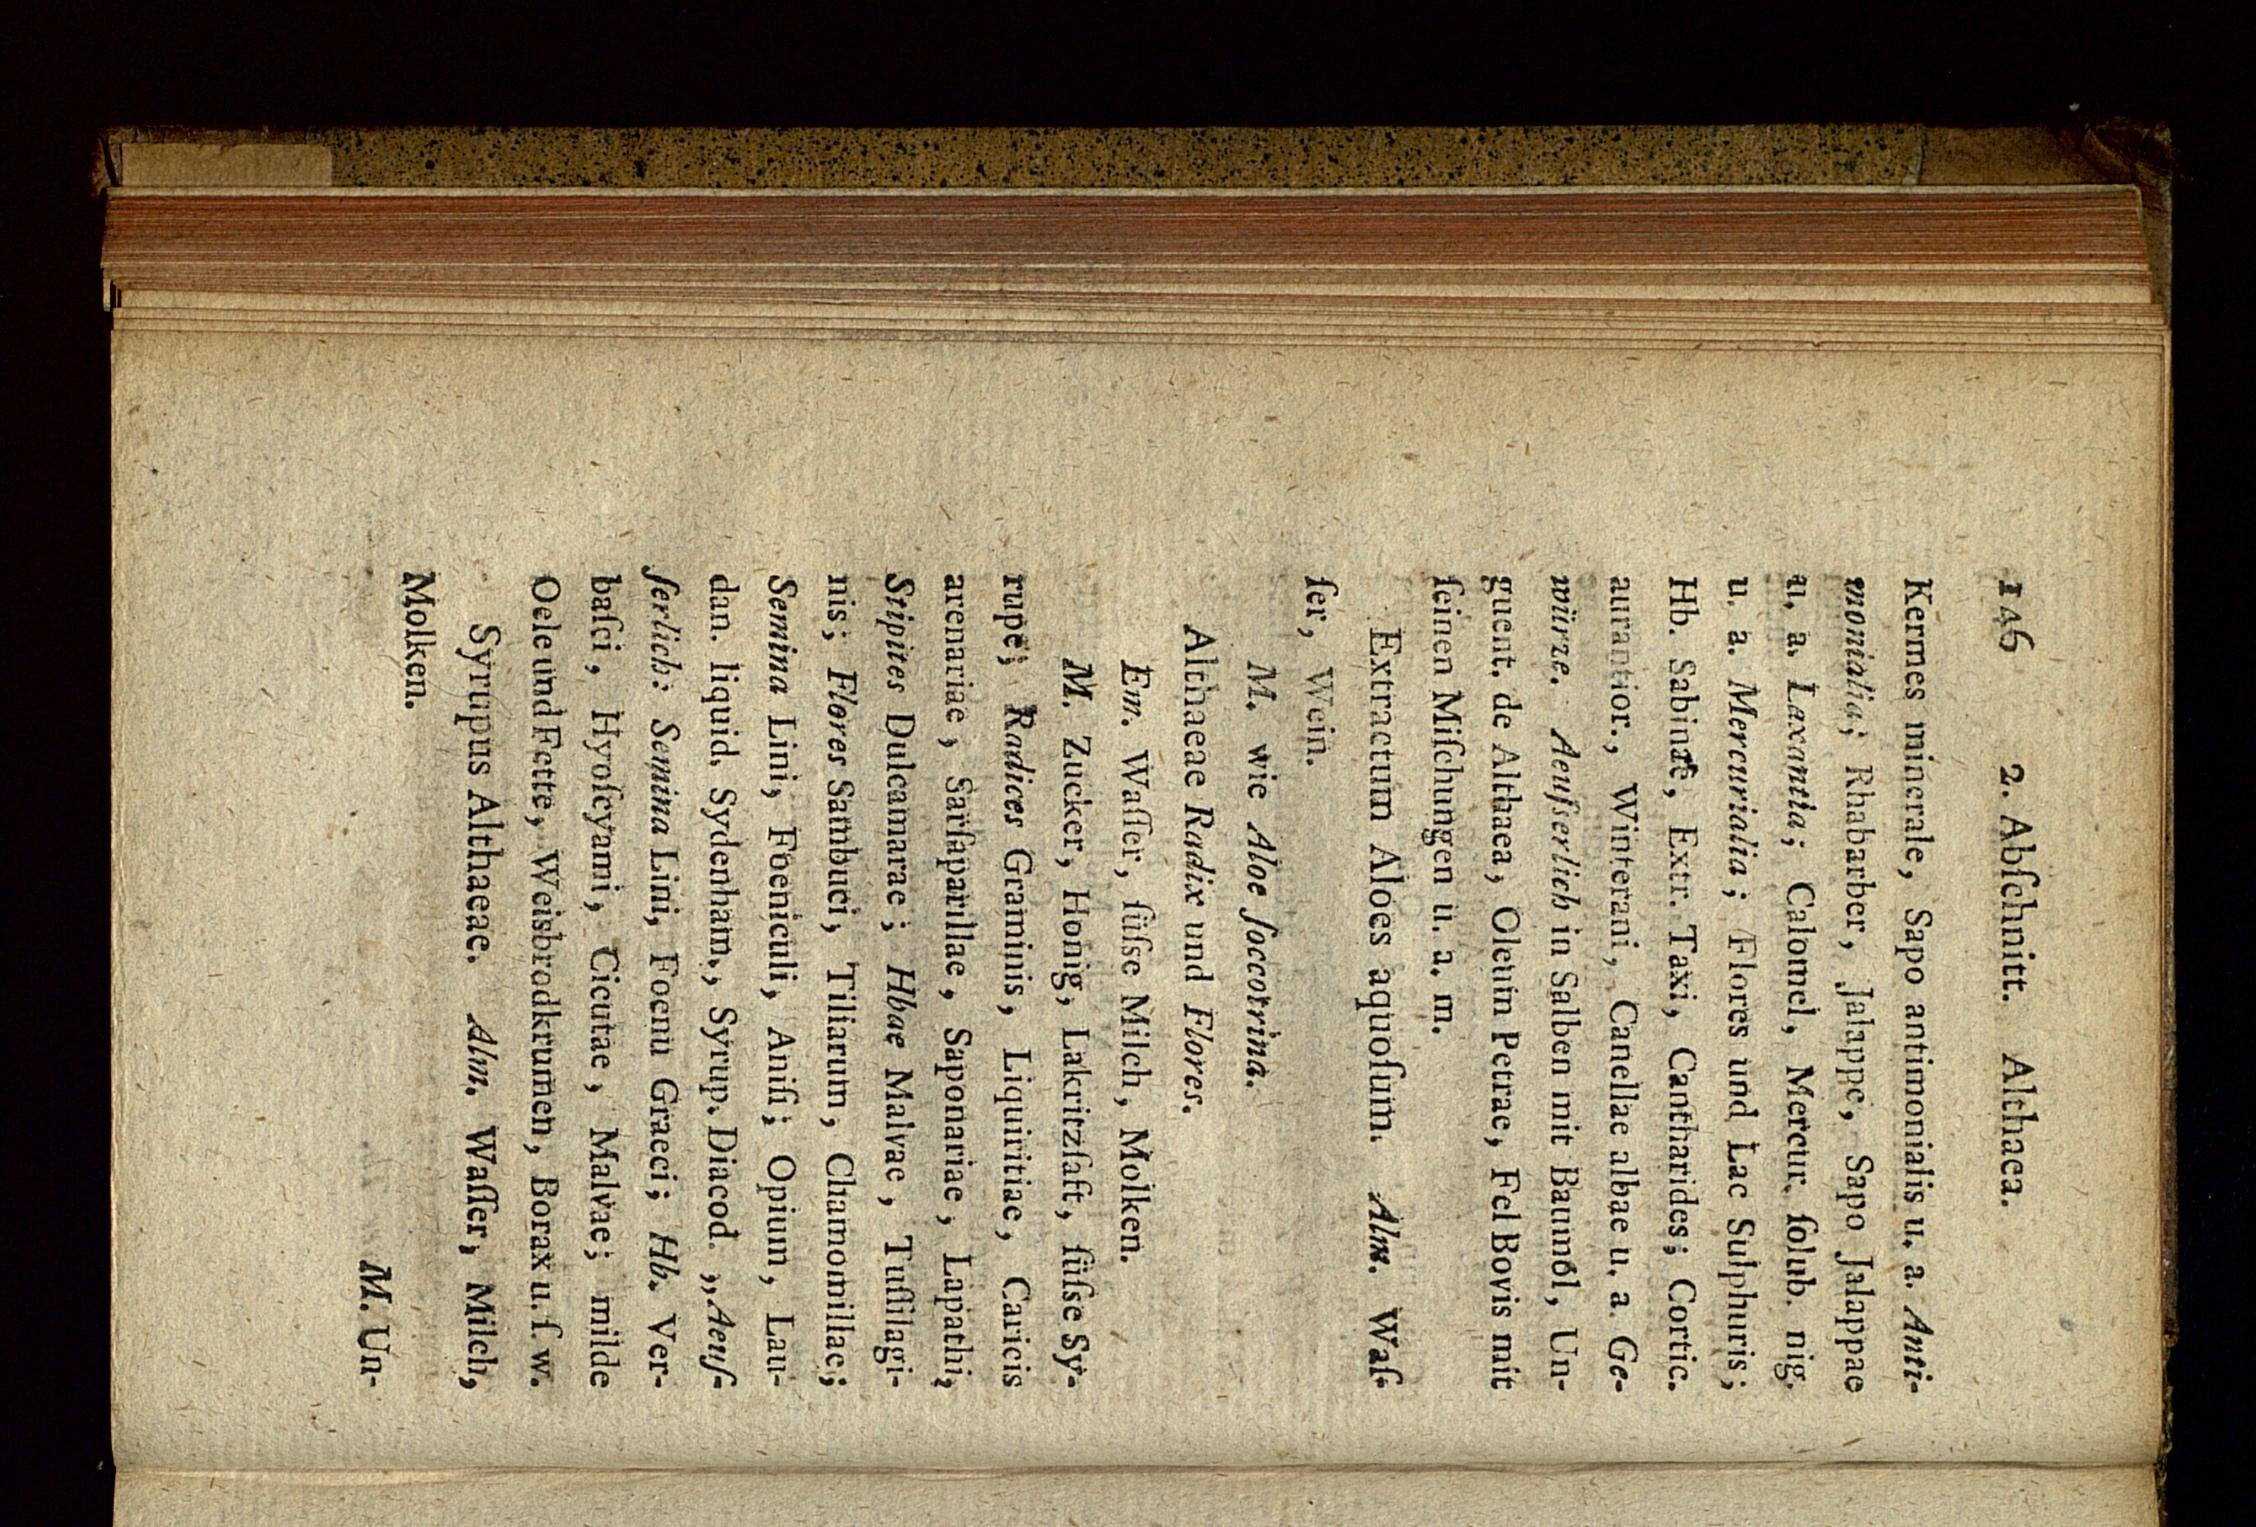 146 2. Abſchnitt. Althaea.
Kermes minerale, Sapo antimonialis u. a. Anti-
monialia; Rhabarber, Jalappe, Sapo Jalappae
u. a. Laxantia; Calomel, Mercur. ſolub. nig.
u. a. Mercurialia; Flores und Lac Sulphuris;
Hb. Sabinae, Extr. Taxi, Cantharides; Cortic.
aurantior., Winterani, Canellae albae u. a. Ge-
würze. Aeuſserlich in Salben mit Baumöl, Un-
guent. de Althaea, Oleum Petrae, Fel Bovis mit
ſeinen Miſchungen u. a. m.
Extractum Aloes aquoſum. Alm. Waſ-
ſer, Wein.
M. wie Aloe ſoccotrina.
Althaeae Radix und Flores.
Em. Waſſer, ſüſse Milch, Molken.
M. Zucker, Honig, Lakritzſaft, ſüſse Sy-
rupe; Radices Graminis, Liquiritiae, Caricis
arenariae, Sarſaparillae, Saponariae, Lapathi;
Stipites Dulcamarae; Hbae Malvae, Tuſſilagi-
nis; Flores Sambuci, Tiliarum, Chamomillae;
Semina Lini, Foeniculi, Aniſi; Opium, Lau-
dan. liquid. Sydenham., Syrup. Diacod. „Aeuſ-
ſerlich: Semina Lini, Foenu Graeci; Hb. Ver-
baſci, Hyoſcyami, Cicutae, Malvae; milde
Oele und Fette, Weisbrodkrumen, Borax u. ſ. w.
Syrupus Althaeae. Alm. Waſſer, Milch,
Molken.
M. Un-